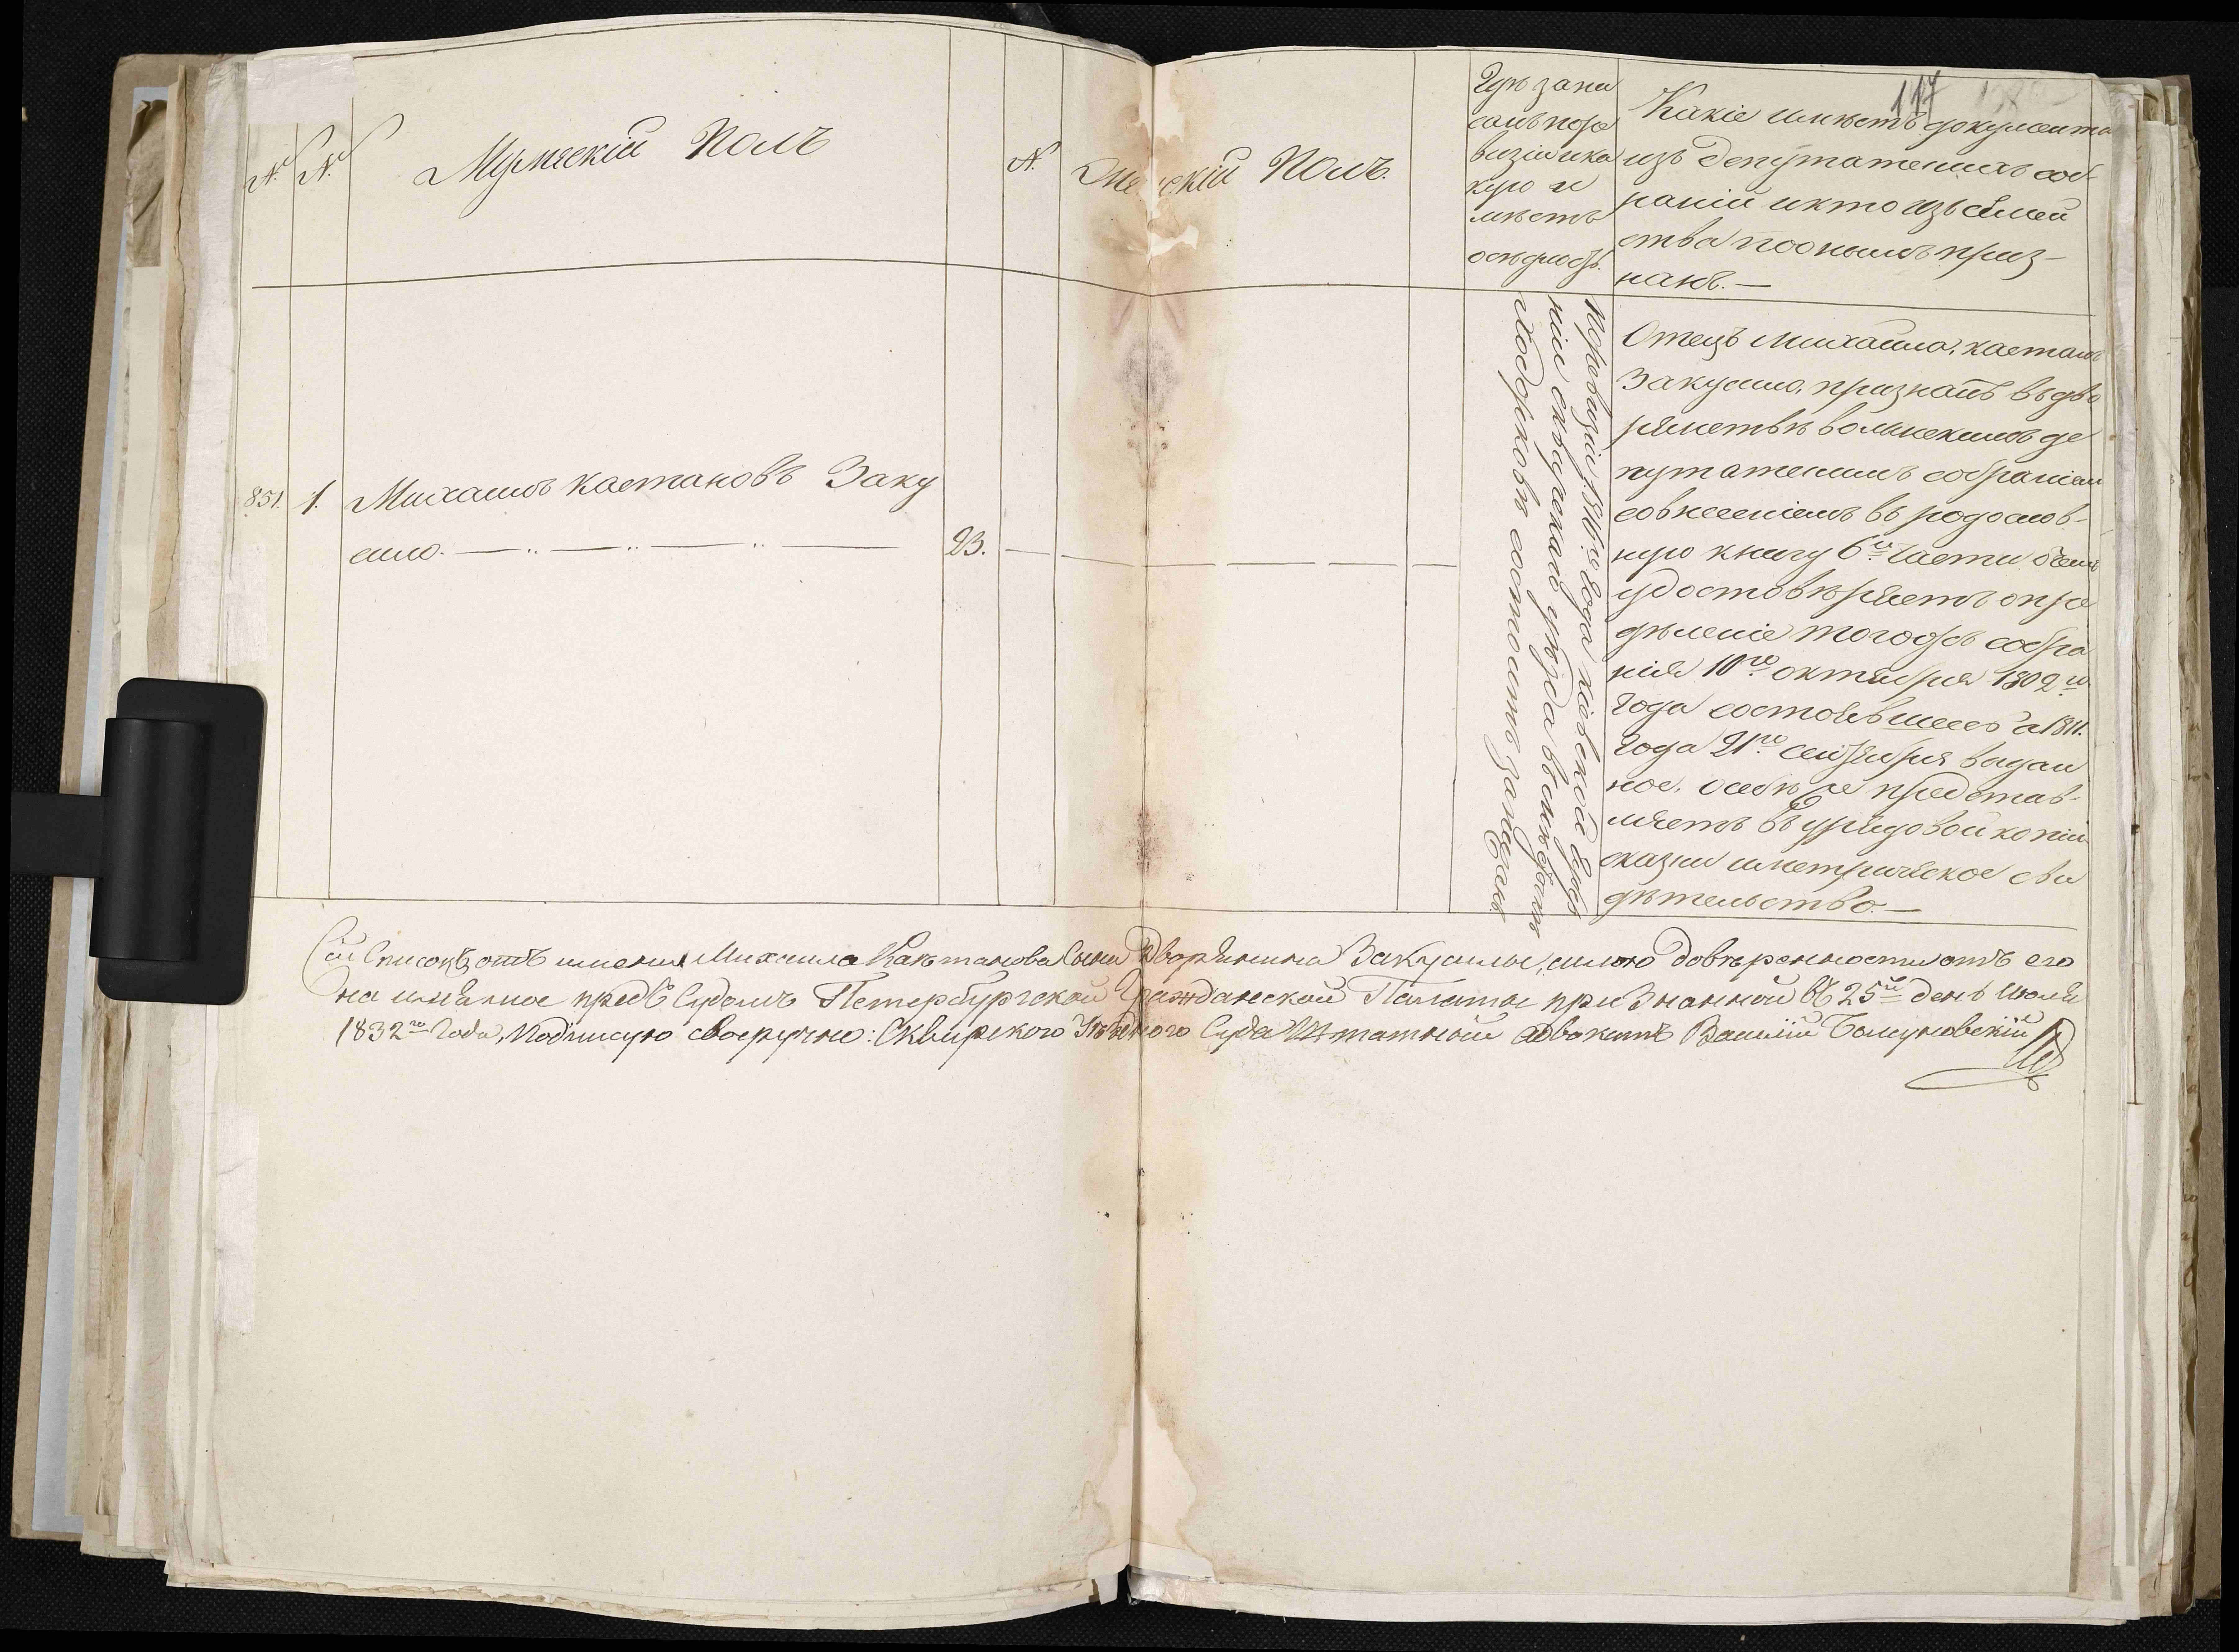 117
№ №
Мужескій Полъ
№
Женскій Полъ.
Гдѣ запи
санъ по ре
визіи и ка
кую и
мѣетъ
осѣдлость.
Какіе имѣетъ документы
изъ депутатскихъ соб-
раній и кто изъ семей
ства по онымъ приз-
нанъ. —
851. 1. Михаилъ Каетановъ Заку
сило. — 23. —
По ревизіи 1816го года кіевской губер
ніи сквирскаго уѣзда въ
Ходорковъ состоитъ записанъ
Отецъ Михаила, каетанъ
Закусило, признанъ въ дво
рянствѣ волынскимъ де
путатскимъ собраніемъ
со внесеніемъ въ родослов-
ную книгу 6й части, о чемъ
удостовѣряетъ опре
дѣленіе того жъ собра
нія 10го октября 1802го
года состоявшееся а 1811.
года 21го сентября выдан
ное. о себѣ же представ-
ляетъ въ урядовой копіи
сказки и метрическое сви
дѣтельство. —
Сей Списокъ отъ имени Михаила Каэтанова Сына Дворянина Закусилы, силою довѣренности отъ его
на имя мое предъ Судомъ Петербургской Гражданской Палаты признанной въ 25й день Июля
1832го Года, Подписую своеручно: Сквирского Уѣздного Суда Штатный адвокатъ Василій